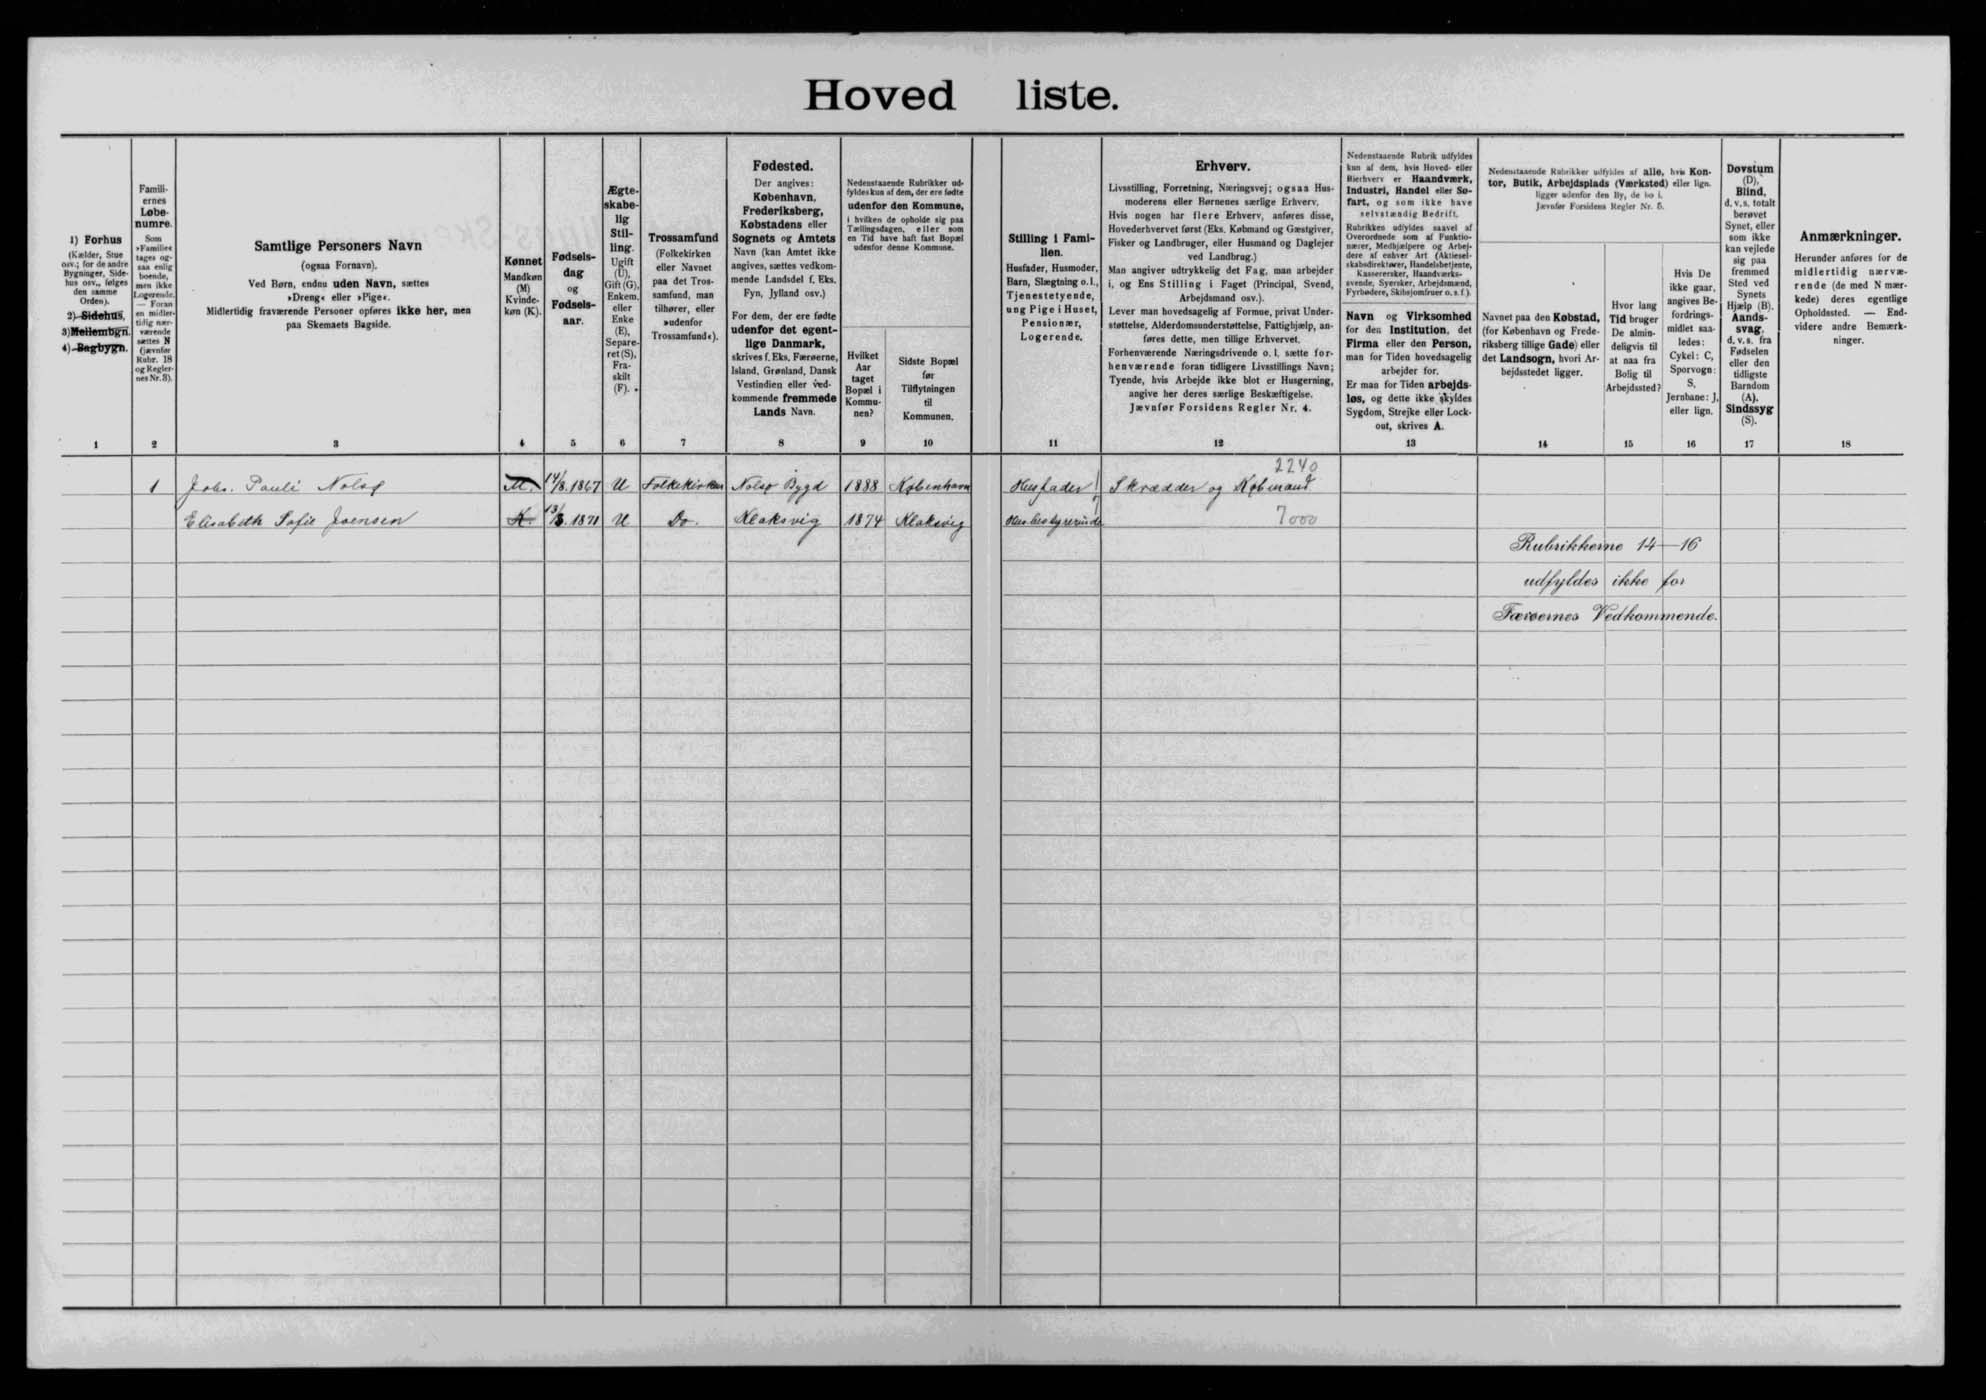 Hoved liste.
1) Forhus
(Kælder, Stue
osv.; for de andre
Bygninger, Side-
hus osv., følges
den samme
Orden).
2) Sidehus,
3) Mellembgn.
4) Bagbygn.
1
Famili-
ernes
Løbe-
numre.
Som
»Familie«
tages og-
saa enlig
boende,
men ikke
Logerende.
— Foran
en midler-
tidig nær-
værende
sættes N
(jævnfør
Rubr. 18
og Regler-
nes Nr. 3).
2
Samtlige Personers Navn
(ogsaa Fornavn).
Ved Børn, endnu uden Navn, sættes
»Dreng« eller »Pige«.
Midlertidig fraværende Personer opføres ikke her, men
paa Skemaets Bagside.
3
Kønnet
Mandkøn
(M)
Kvinde-
køn (K).
4
Fødsels-
dag
og
Fødsels-
aar.
5
Ægte-
skabe-
lig
Stil-
ling.
Ugift
(U),
Gift (G),
Enkem.
eller
Enke
(E),
Separe-
ret (S),
Fra-
skilt
(F).
6
Trossamfund
(Folkekirken
eller Navnet
paa det Tros-
samfund, man
tilhører, eller
»udenfor
Trossamfund«).
7
Fødested.
Der angives:
København,
Frederiksberg,
Købstadens eller
Sognets og Amtets
Navn (kan Amtet ikke
angives, sættes vedkom-
mende Landsdel f. Eks.
Fyn, Jylland osv.)
For dem, der ere fødte
udenfor det egent-
lige Danmark,
skrives f. Eks. Færøerne,
Island, Grønland, Dansk
Vestindien eller ved-
kommende fremmede
Lands Navn.
8
Nedenstaaende Rubrikker ud-
fyldes kun af dem, der ere fødte
udenfor den Kommune,
i hvilken de opholde sig paa
Tællingsdagen, eller som
en Tid have haft fast Bopæl
udenfor denne Kommune.
Hvilket
Aar
taget
Bopæl i
Kommu-
nen?
9
Sidste Bopæl
før
Tilflytningen
til
Kommunen.
10
Stilling i Fami-
lien.
Husfader, Husmoder,
Barn, Slægtning o. l.,
Tjenestetyende,
ung Pige i Huset,
Pensionær,
Logerende.
11
Erhverv.
Livsstilling, Forretning, Næringsvej; ogsaa Hus-
moderens eller Børnenes særlige Erhverv.
Hvis nogen har flere Erhverv, anføres disse,
Hovederhvervet først (Eks. Købmand og Gæstgiver,
Fisker og Landbruger, eller Husmand og Daglejer
ved Landbrug.)
Man angiver udtrykkelig det Fag, man arbejder
i, og Ens Stilling i Faget (Principal, Svend,
Arbejdsmand osv.).
Lever man hovedsagelig af Formue, privat Under-
støttelse, Alderdomsunderstøttelse, Fattighjælp, an-
føres dette, men tillige Erhvervet.
Forhenværende Næringsdrivende o. l. sætte for-
henværende foran tidligere Livsstillings Navn;
Tyende, hvis Arbejde ikke blot er Husgerning,
angive her deres særlige Beskæftigelse.
Jævnfør Forsidens Regler Nr. 4.
12
Nedenstaaende Rubrik udfyldes
kun af dem, hvis Hoved- eller
Bierhverv er Haandværk,
Industri, Handel eller Sø-
fart, og som ikke have
selvstændig Bedrift.
Rubrikken udfyldes saavel af
Overordnede som af Funktio-
nærer, Medhjælpere og Arbej-
dere af enhver Art (Aktiesel-
skabsdirektører, Handelsbetjente,
Kasserersker, Haandværks-
svende, Syersker, Arbejdsmænd,
Fyrbødere, Skibsjomfruer o. s. f.).
Navn og Virksomhed
for den Institution, det
Firma eller den Person,
man for Tiden hovedsagelig
arbejder for.
Er man for Tiden arbejds-
løs, og dette ikke skyldes
Sygdom, Strejke eller Lock-
out, skrives A.
13
Nedenstaaende Rubrikker udfyldes af alle, hvis Kon-
tor, Butik, Arbejdsplads (Værksted) eller lign.
ligger udenfor den By, de bo i.
Jævnfør Forsidens Regler Nr. 5.
Navnet paa den Købstad,
(for København og Frede-
riksberg tillige Gade) eller
det Landsogn, hvori Ar-
bejdsstedet ligger.
14
Hvor lang
Tid bruger
De almin-
deligvis til
at naa fra
Bolig til
Arbejdssted?
15
Hvis De
ikke gaar,
angives Be-
fordrings-
midlet saa-
ledes:
Cykel: C,
Sporvogn:
S,
Jernbane: J,
eller lign.
16
Døvstum
(D),
Blind,
d. v. s. totalt
berøvet
Synet, eller
som ikke
kan vejlede
sig paa
fremmed
Sted ved
Synets
Hjælp (B).
Aands-
svag,
d. v. s. fra
Fødselen
eller den
tidligste
Barndom
(A).
Sindssyg
(S).
17
Anmærkninger.
Herunder anføres for de
midlertidig nærvæ-
rende (de med N mær-
kede) deres egentlige
Opholdssted. — End-
videre andre Bemærk-
ninger.
18
2240
1 Johs. Pauli Nolsø M. 14/8. 1867 U Folkekirken Nolsø Bygd 1888 København Husfader Skrædder og Købmand
Elisabeth Sofie Joensen K. 13/3. 1871 U Do. Klaksvig 1874 Klaksvig Husbestyrerinde 7000
Rubrikkerne 14—16
udfyldes ikke for
Færøernes Vedkommende.